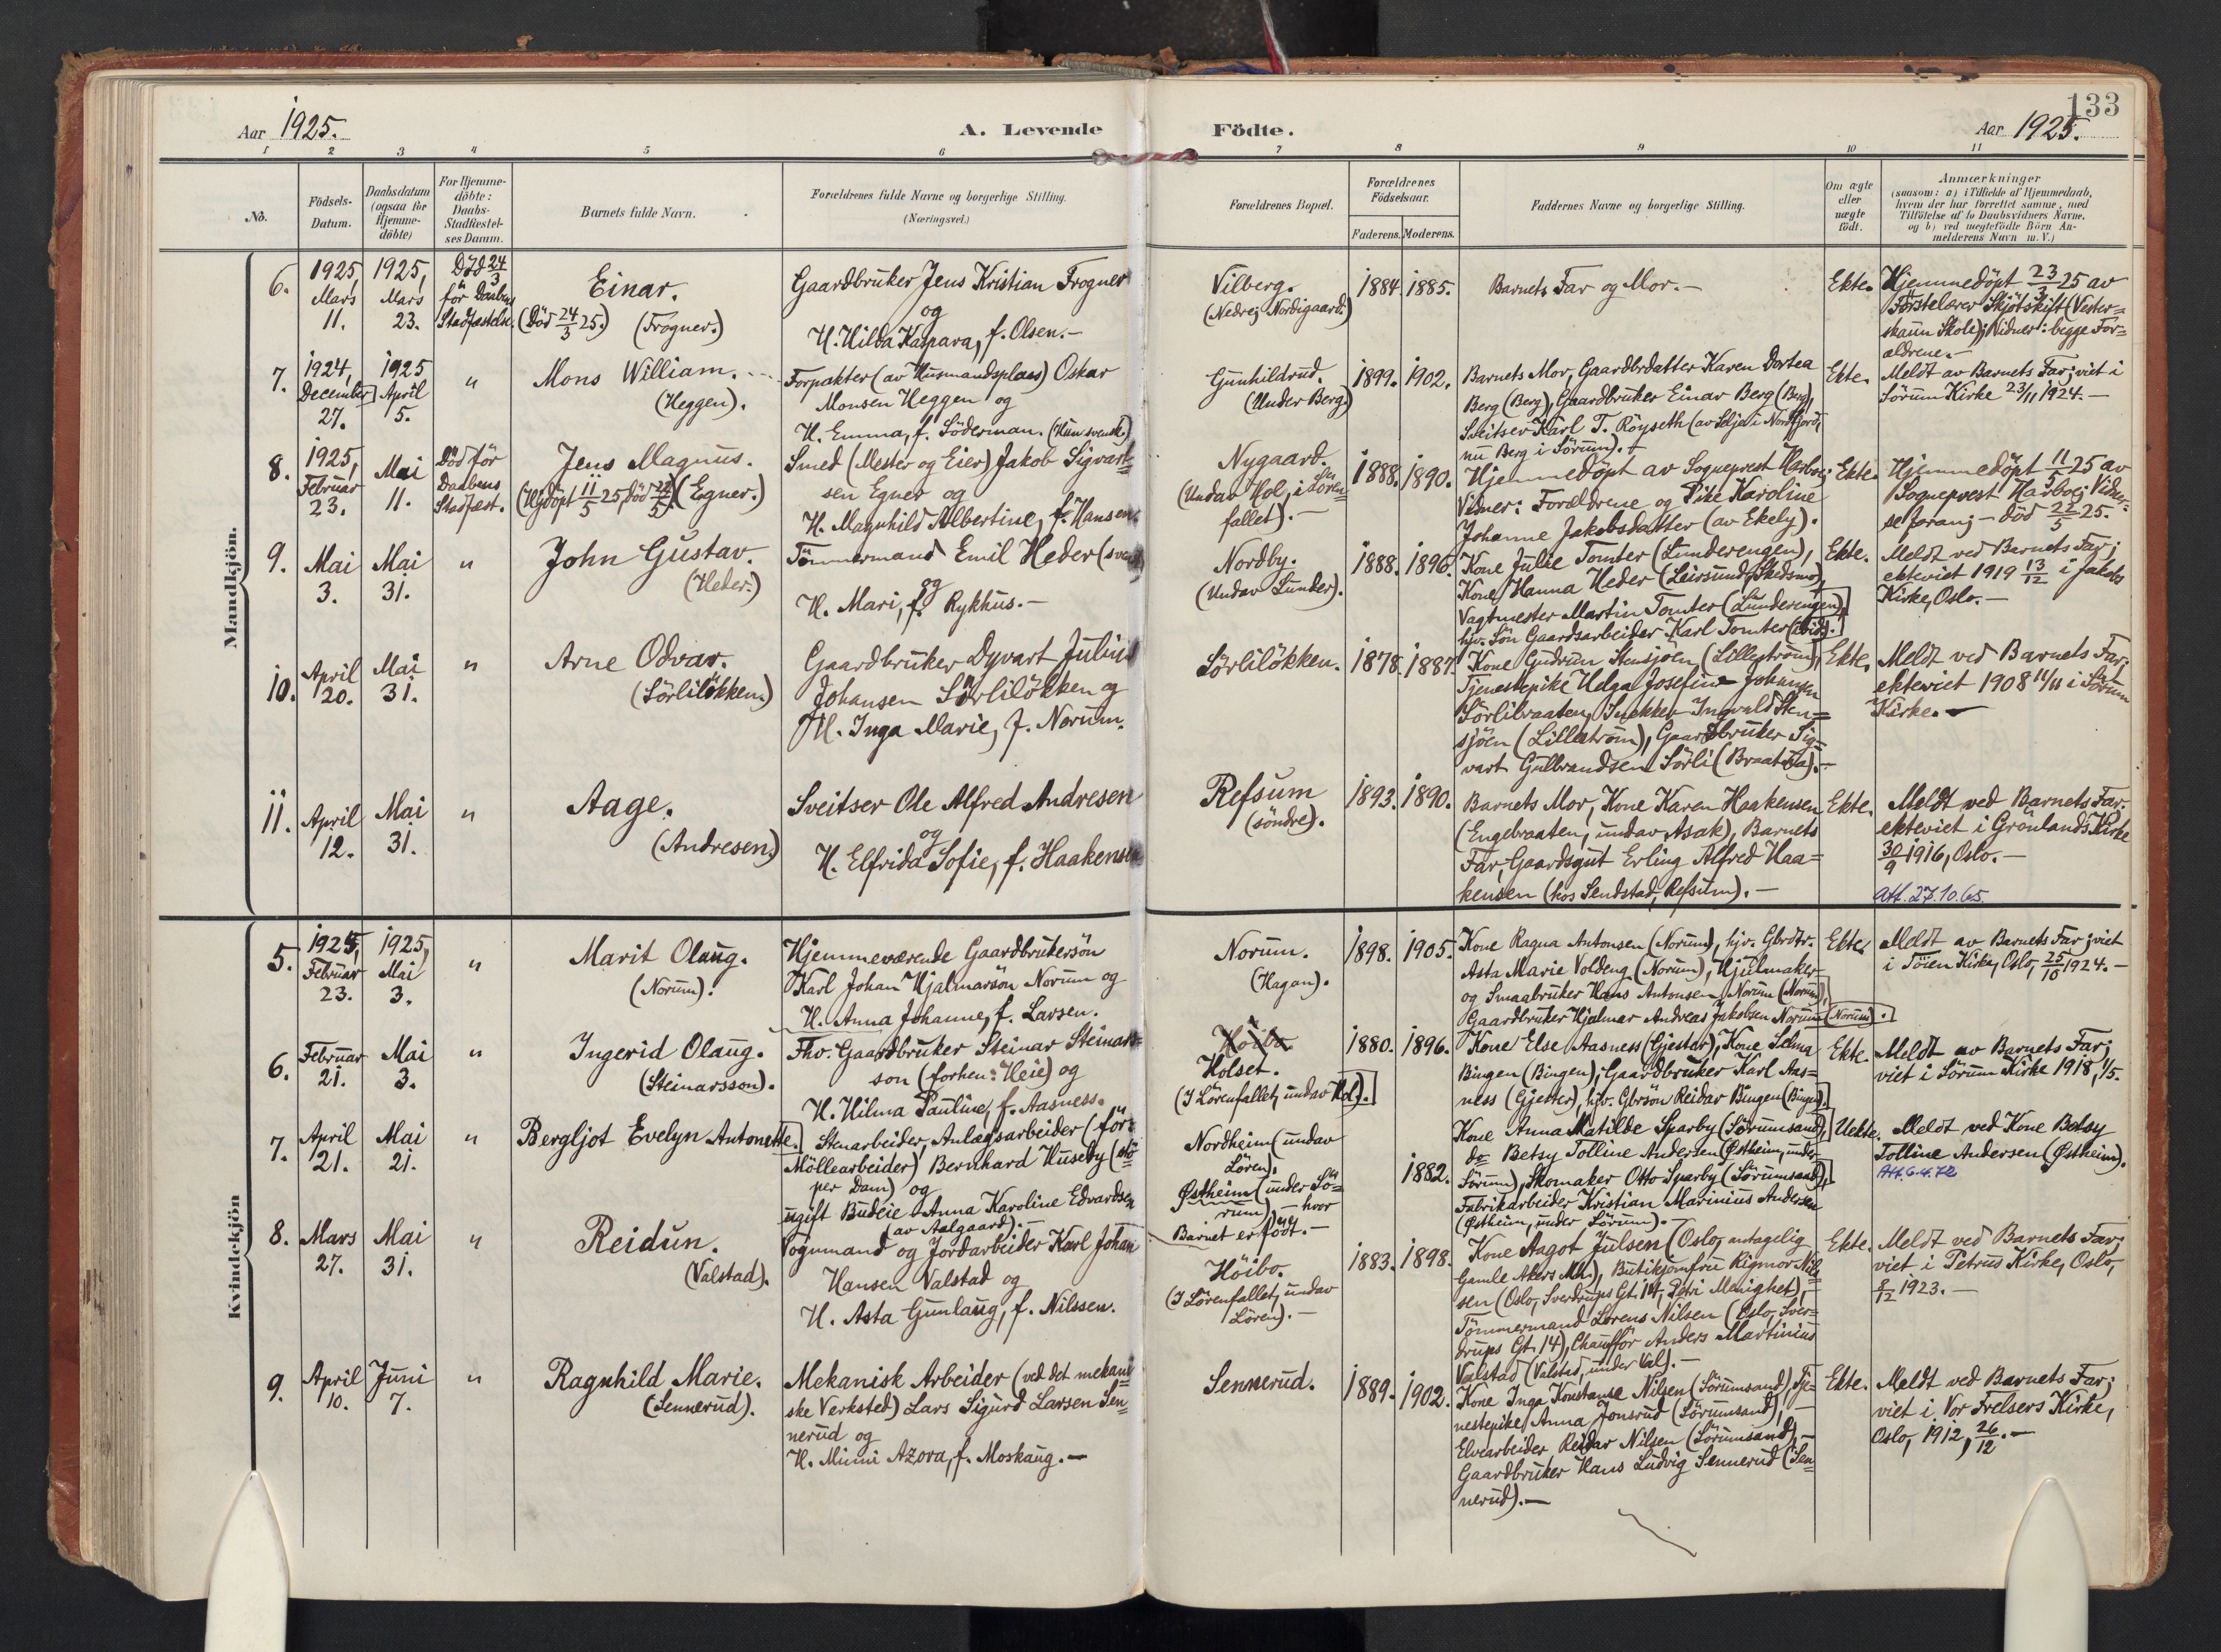 133
Aar 1925.
A. Levende Födte.
Aar 1925.
1 2 3 4 5 6 7 8 9 10 11
No.
Födsels-
Datum.
Daabsdatum
(ogsaa for
Hjemme-
döbte)
For Hjemme-
döbte:
Daabs-
Stadfæstel-
ses Datum.
Barnets fulde Navn.
Forældrenes fulde Navne og borgerlige Stilling.
(Næringsvei.)
Forældrenes Bopæl.
Forældrenes
Födselsaar.
Faderens. Moderens.
Faddernes Navne og borgerlige Stilling.
Om ægte
eller
uægte
födt.
Anmærkninger
(saasom: a) i Tilfælde af Hjemmedaab,
hvem der har forrettet samme, med
Tilföielse af to Daabsvidners Navne,
og b) ved uegtefödte Börn An-
melderens Navn m.V.)
Mandkjön.
6.
1925,
Mars
11.
1925,
Mars
23.
Död 24/3
för Daabens
Stadfæstelse.
Einar.
(Död 24/3 25.) (Frogner.)
Gaardbruker Jens Kristian Frogner
og
H. Hilda Kaspara, f. Olsen.-
Vilberg.
(Nedre; Nordigaard.)
1884. 1885.
Barnets Far og Mor.-
Ekte.
Hjemmedöpt 23/3 25 av
Förstelærer Skjötskift (Vester-
skaun Skole); Vidner: begge For-
ældrene.-
7.
1924,
December
27.
1925
April
5.
"
Mons William.
(Heggen).
Forpakter (av Husmandsplass) Oskar
Monsen Heggen og
H. Emma, f. Söderman. (Hun svensk.)
Gunhildrud.
(Under Berg)
1899. 1902.
Barnets Mor, Gaardbrdatter Karen Dortea
Berg (Berg), Gaardbruker Einar Berg (Berg),
Sveitser Karl T. Röyseth (av Selje i Nordfjord,
nu Berg i Sörum).-
Ekte.
Meldt av Barnets Far; viet i
Sörum Kirke 23/11 1924.-
8.
1925,
Februar
23.
Mai
11.
Död för
Daabens
Stadfæst.
Jens Magnus.
(Hjdöpt 11/5 25, död 22/5) (Egner.)
Smed (Mester og Eier) Jakob Sigvart-
sen Egner og
H. Magnhild Albertine, f. Hansen.
Nygaard.
(Undav Hol, i Lören-
fallet).-
1888. 1890.
Hjemmedöpt av Sogneprest Harboe;
Vidner: Forældrene og Pike Karoline
Johanne Jakobsdatter (av Ekely).
Ekte.
Hjemmedöpt 11/5 25 av
Sogneprest Harboe; Vidner-
se foran;- död 22/5 25.
9.
Mai
3.
Mai
31.
"
John Gustav.
(Heder.)
Tömmermand Emil Heder (svensk)
og
H. Mari, f. Rykhus.-
Nordby.
(Undav Lunder).
1888. 1896.
Kone Julie Tomter (Lunderengen),
Kone Hanna Heder (Leirsund, Skedsmo),
Vagtmester Martin Tomter (Lunderengen),
hjv. Sön Gaardsarbeider Karl Tomter (ibid).
Ekte.
Meldt ved Barnets Far;
ekteviet 1919 13/12 i Jakobs
Kirke, Oslo.-
10.
April
20.
Mai
31.
"
Arne Odvar.
(Sörlilökken.)
Gaardbruker Dyvart Julius
Johansen Sörlilökken og
H. Inga Marie, f. Norum.
Sörlilökken.
1878. 1887.
Kone Gudrun Stensjöen (Lilleström),
Tjenestepike Helga Josefine Johansen
Sörlibraaten, Snekker Ingvald Sten-
sjöen (Lilleström), Gaardbruker Sig-
vart Gulbrandsen Sörli (Braatna).-
Ekte.
Meldt ved Barnets Far;
ekteviet 1908 11/11 i Sörum
Kirke.-
11.
April
12.
Mai
31.
"
Aage.
(Andresen.)
Sveitser Ole Alfred Andresen
og
H. Elfrida Sofie, f. Haakensen
Refsum
(söndre).
1893. 1890.
Barnets Mor, Kone Karen Haakensen
(Engebraaten, undav Asak), Barnets
Far, Gaardsgut Erling Alfred Haa-
kensen (hos Sendstad, Refsum).-
Ekte.
Meldt ved Barnets Far.
ekteviet i Grönlands Kirke
30/9 1916, Oslo.-
Att. 27.10.65.
Kvindekjön
5.
1925,
Februar
23.
1925,
Mai
3.
"
Marit Olaug.
(Norum).
Hjemmeværende Gaardbrukersön
Karl Johan Hjalmarsön Norum og
H. Anna Johanne, f. Larsen.
Norum.
(Hagan).
1898. 1905.
Kone Ragna Antonsen (Norum), hjv. Gbrdtr.
Asta Marie Voldeng (Norum), Hjulmaker
og Smaabruker Hans Antonsen Norum (Norum),
Gaardbruker Hjalmar Andreas Jakobsen Norum (Norum).
Ekte.
Meldt av Barnets Far; viet
i Töien Kirke, Oslo, 25/10 1924.-
6.
Februar
21.
Mai
3.
"
Ingerid Olaug.
(Steinarsson).
Fhv. Gaardbruker Steinar Steinars-
son (forhen: Heie) og
H. Hilma Pauline, f. Aasness.
Höibo
Holset.
(I Lörenfallet, undav Hol).
1880. 1896.
Kone Else Aasness (Gjester), Kone Selma
Bingen (Bingen), Gaardbruker Karl Aas-
ness (Gjester), hjv. Gbrsön Reidar Bingen (Bingen).
Ekte.
Meldt av Barnets Far;
viet i Sörum Kirke 1918, 1/5.
7.
April
21.
Mai
21.
"
Bergljot Evelyn Antonette.
Stenarbeider, Anlægsarbeider (för
Möllearbeider) Bernhard Huseby (
per Dam) og
ugift Budeie Anna Karoline Edvardsen
(av Aalgaard).-
Nordheim (undav
Lören).
Østheim (under Sö-
rum),- hvor
Barnet er födt.-
1882.
Kone Anna Matilde Sparby (Sörumsand),
do Betsy Tolline Andersen (Østheim, under
Sörum), Skomaker Otto Sparby (Sörumsand),
Fabrikarbeider Kristian Marinius Andersen
(Østheim, under Sörum).-
Uekte.
Meldt ved Kone Betsy
Tolline Andersen (Østheim).
Att. 6.4.72
8.
Mars
27.
Mai
31.
"
Reidun.
(Valstad).
Vognmand og Jordarbeider Karl Johan
Hansen Valstad og
H. Asta Gunlaug, f. Nilssen.
Höibo.
(I Lörenfallet, undav
Lören).-
1883. 1898.
Kone Aagot Julsen (Oslo, antagelig
Gamle Akers Mh.), Butikjomfru Rigmor Nil-
sen (Oslo, Sverdrups Gt. 14, Petri Menighet),-
Tömmermand Lorens Nilsen (Oslo, Sver-
drups Gt. 14), Chauffør Anders Martinius
Valstad (Valstad, under Val).-
Ekte.
Meldt ved Barnets Far;
viet i Petrus Kirke, Oslo,
8/12 1923.-
9.
April
10.
Juni
7.
"
Ragnhild Marie.
(Sennerud).
Mekanisk Arbeider (ved det mekani-
ske Verksted) Lars Sigurd Larsen Sen-
nerud og
H. Mimi Azora, f. Moskaug.-
Sennerud.
1889. 1902.
Kone Inga Konstanse Nilsen (Sörumsand), Tje-
nestepike Anna Jonsrud (Sörumsand),-
Elvearbeider Reidar Nilsen (Sörumsand),-
Gaardbruker Hans Ludvig Sennerud (Sen-
nerud).-
Ekte.
Meldt ved Barnets Far;
viet i Vor Frelsers Kirke,
Oslo, 1912, 26/12.-